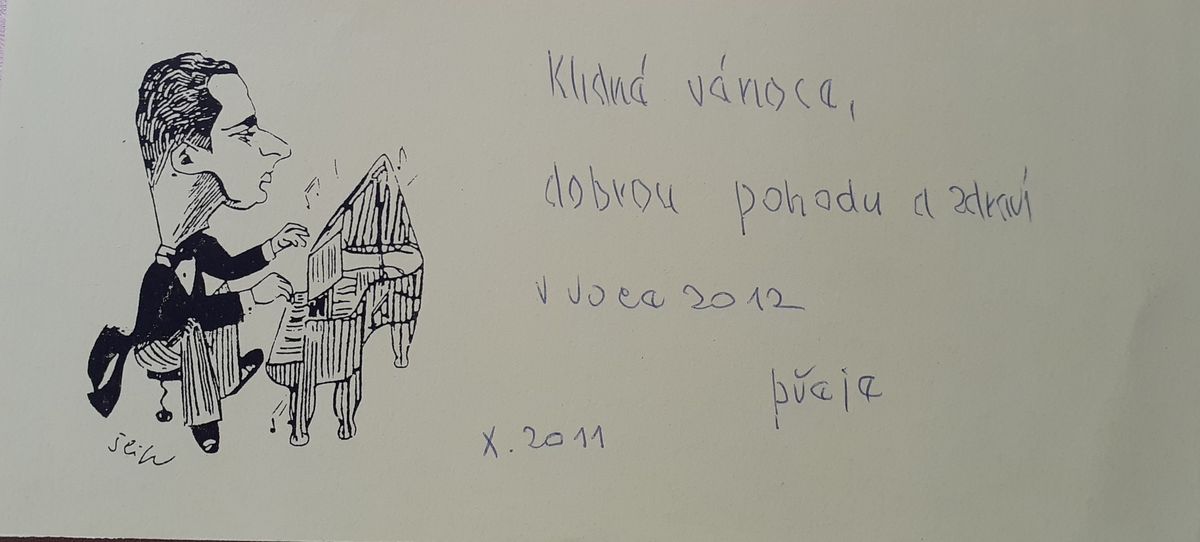 Klidné vánoce,
dobrou pohodu a zdraví
v roce 2012
přeje
X. 2011